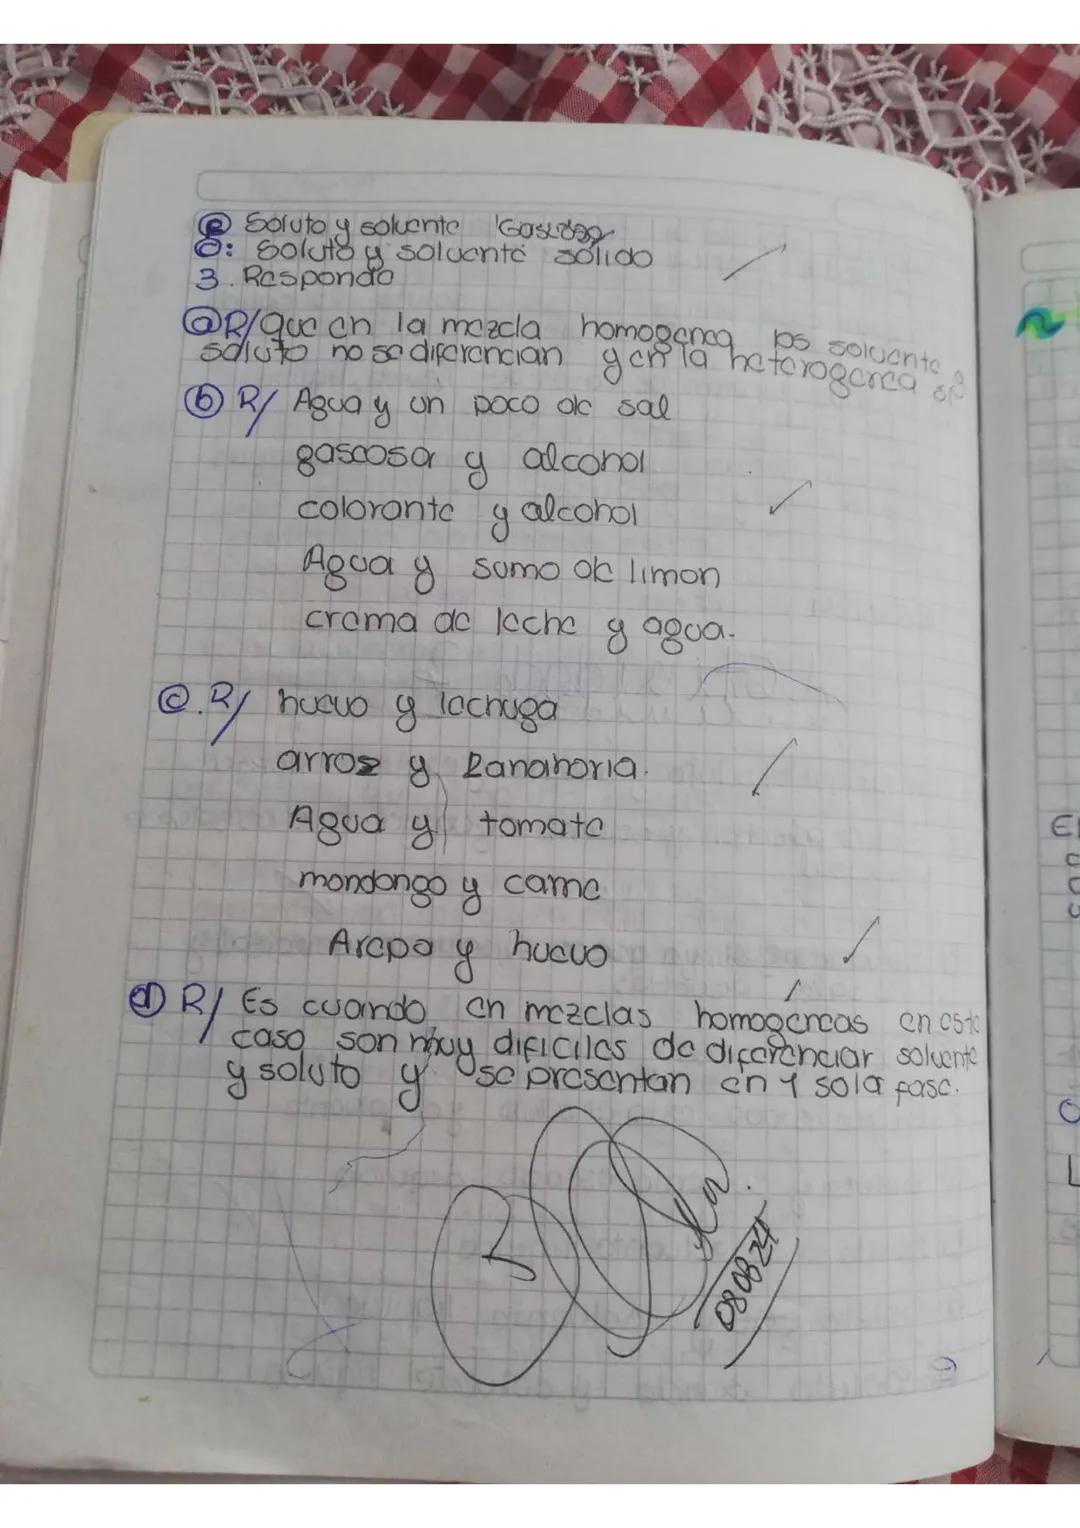 ⓔ Soluto y solvente Gaseoso
O: Soluto y solvente solido
3. Respondo
ⓐ R/ que en la mezcla homogenea los solvente y
soluto no se diferencian y en la heterogenea si
ⓑ R/ Agua y un poco de sal
gascosa y alcohol
colorante y alcohol
Agua y sumo de limon
crema de leche y agua.
ⓒ. R/ huevo y lechuga
arroz y zanahoria.
Agua y tomate
mondongo y carne
Arepa y huevo
ⓓ R/ Es cuando en mezclas homogereas en este
caso son muy dificiles de diferenciar solvente
y soluto y se presentan en 1 sola fase.
080824
6